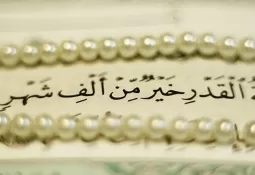 ٱلْقَدْرِ خَيْرٌ مِّنْ أَلْفِ شَهْرٍ